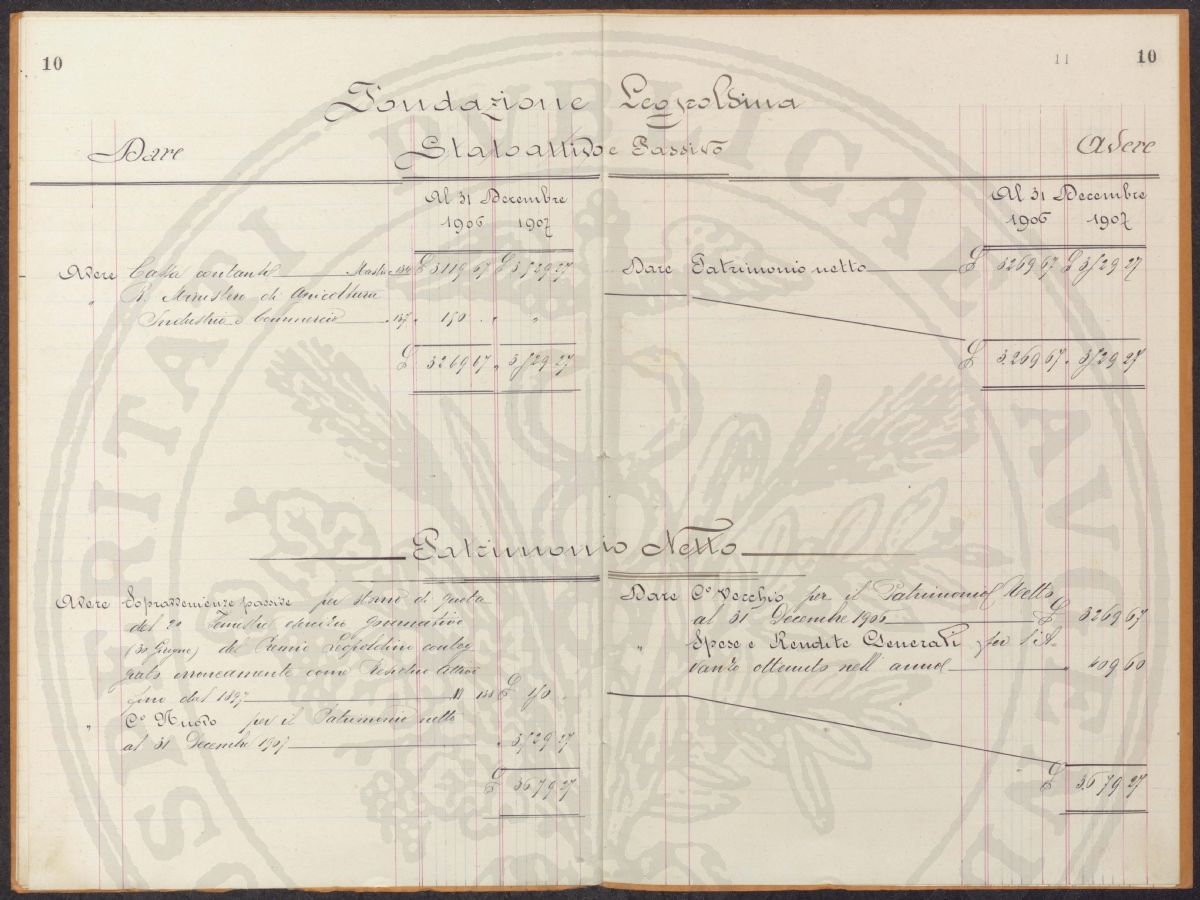 10
11 10
Fondazione Leopoldina
Dare Stato attivo e Passivo Avere
Al 31 Decembre
1906 1907
Al 31 Decembre
1906 1907
Avere Cassa contante Mastro 136 £ 3119 67 £ 3529 27
Dare Patrimonio netto £ 3269 67 £ 3529 27
" R. Ministero di Agricoltura
Industria e Commercio " 137 " 150 " " "
£ 3269 67 " 3529 27
£ 3269 67 " 3529 27
Patrimonio Netto
Avere Sopravvenienze passive per storno di quota
del 2° Semestre esercizio
(30 Giugno) del Premio Leopoldino conteg
giato erroneamente come Residuo Attivo
fino dal 1897 M 138 £ 150 "
" C° Nuovo per il Patrimonio netto
al 31 Decembre 1907 " 3529 27
£ 3679 27
Dare C° Vecchio per il Patrimonio Netto
al 31 Decembre 1906 £ 3269 67
" Spese e Rendite Generali per l'A-
vanzo ottenuto nell'anno " 409 60
£ 3679 27